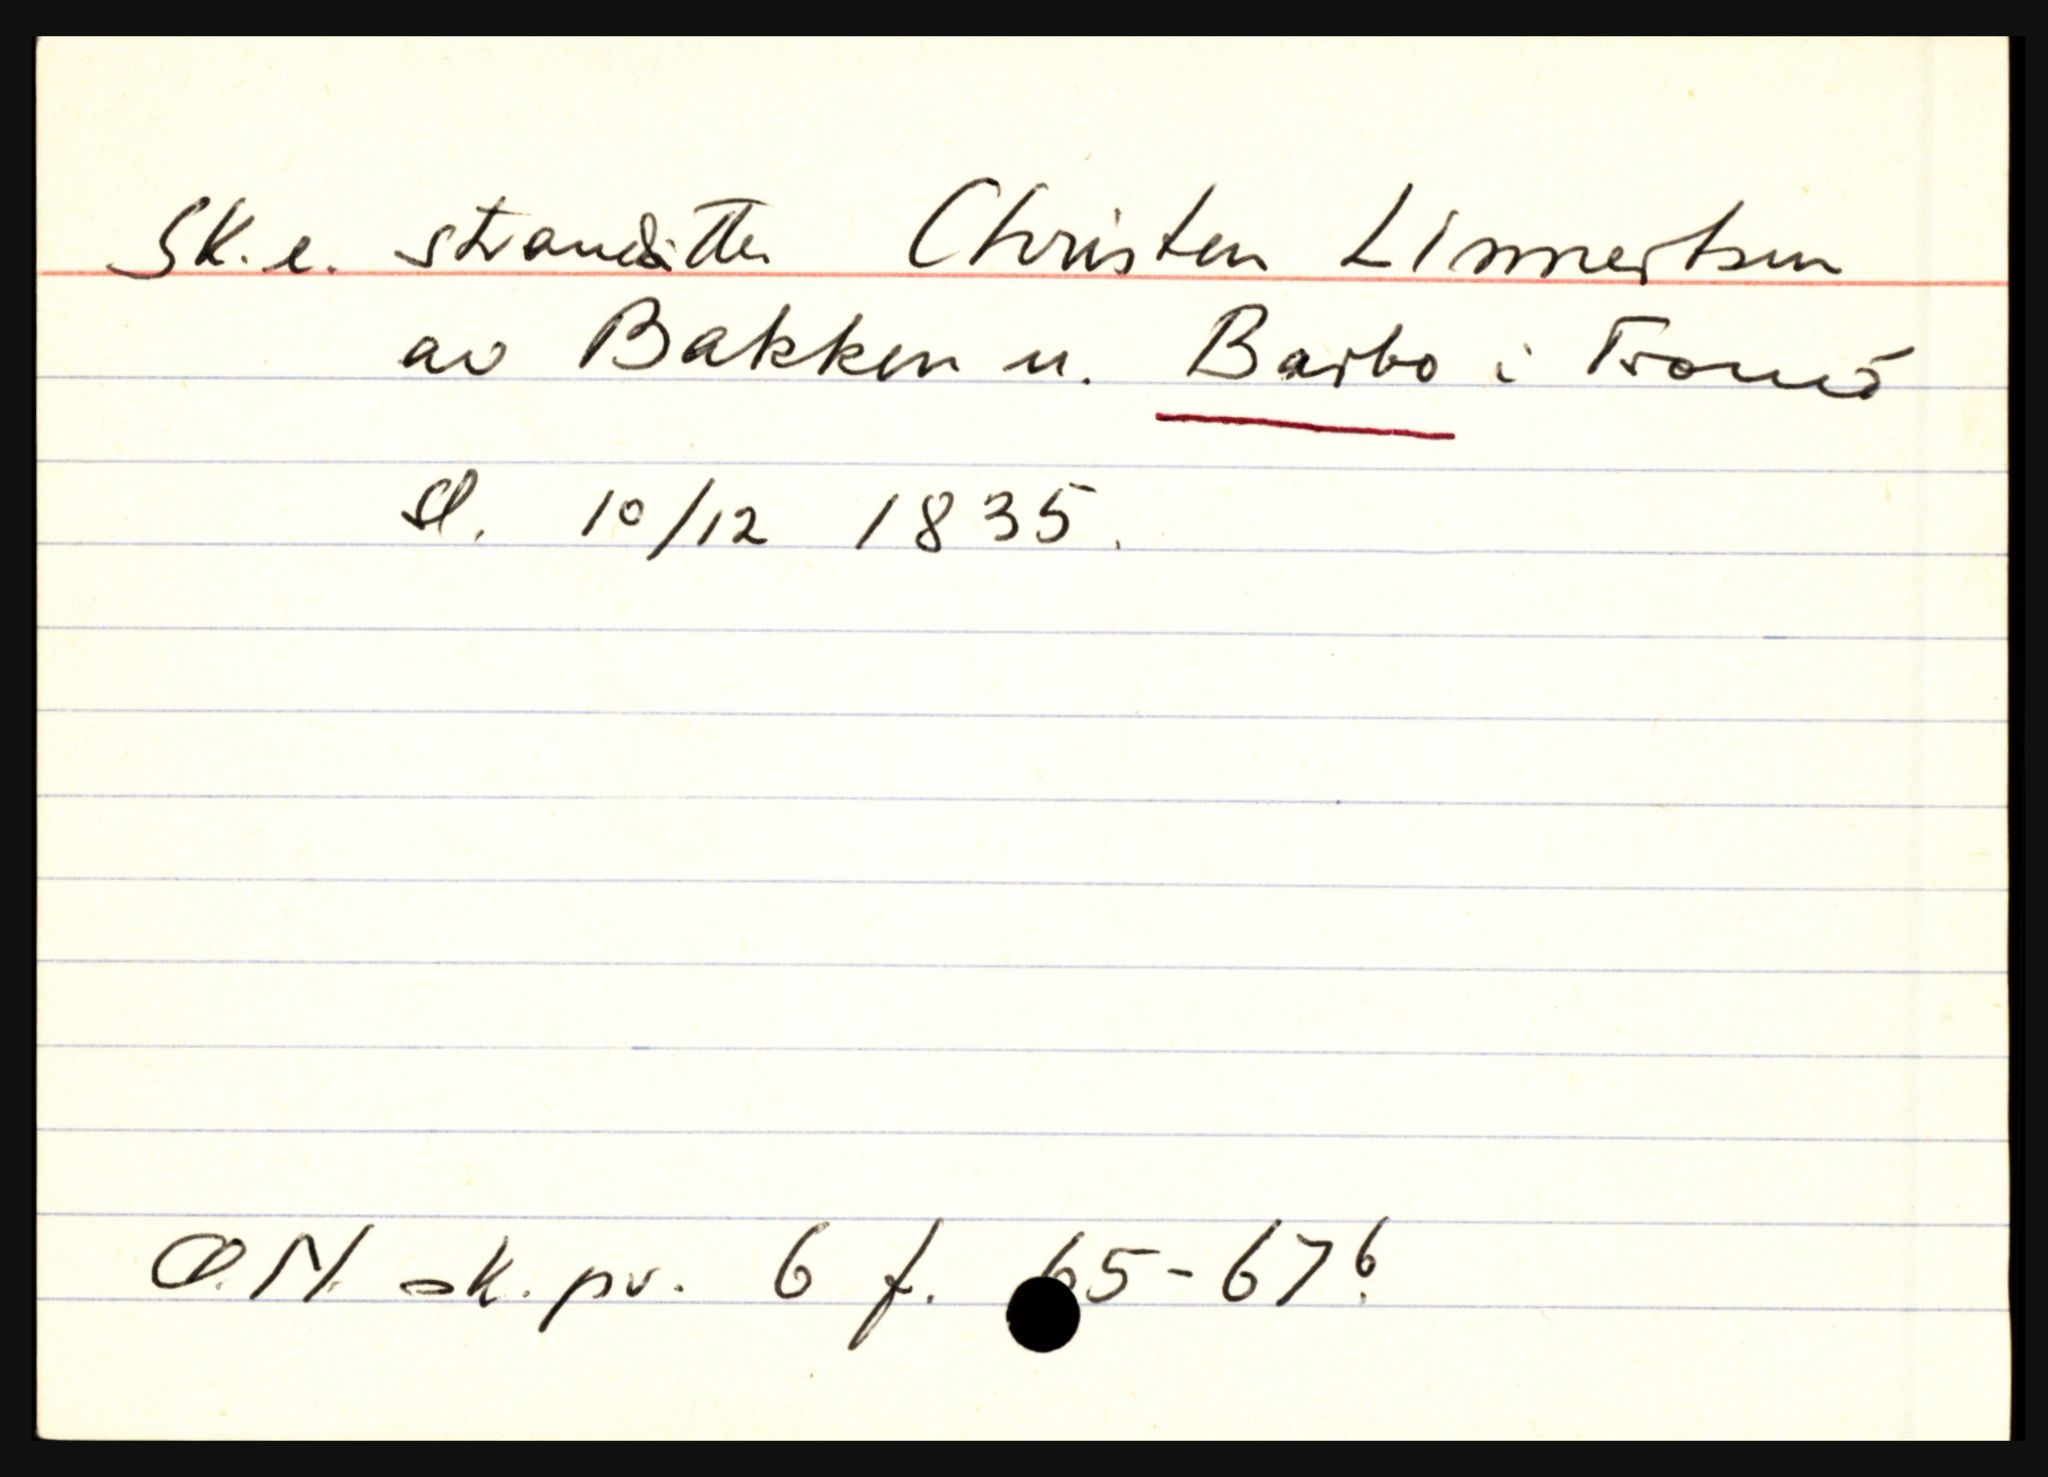 Sk. e. strandsitter Christen Linnertsen
av Bakken u. Barbo i Tromø
sl. 10/12 1835.
Ø.N. sk. pr. 6 f. 65-67b.